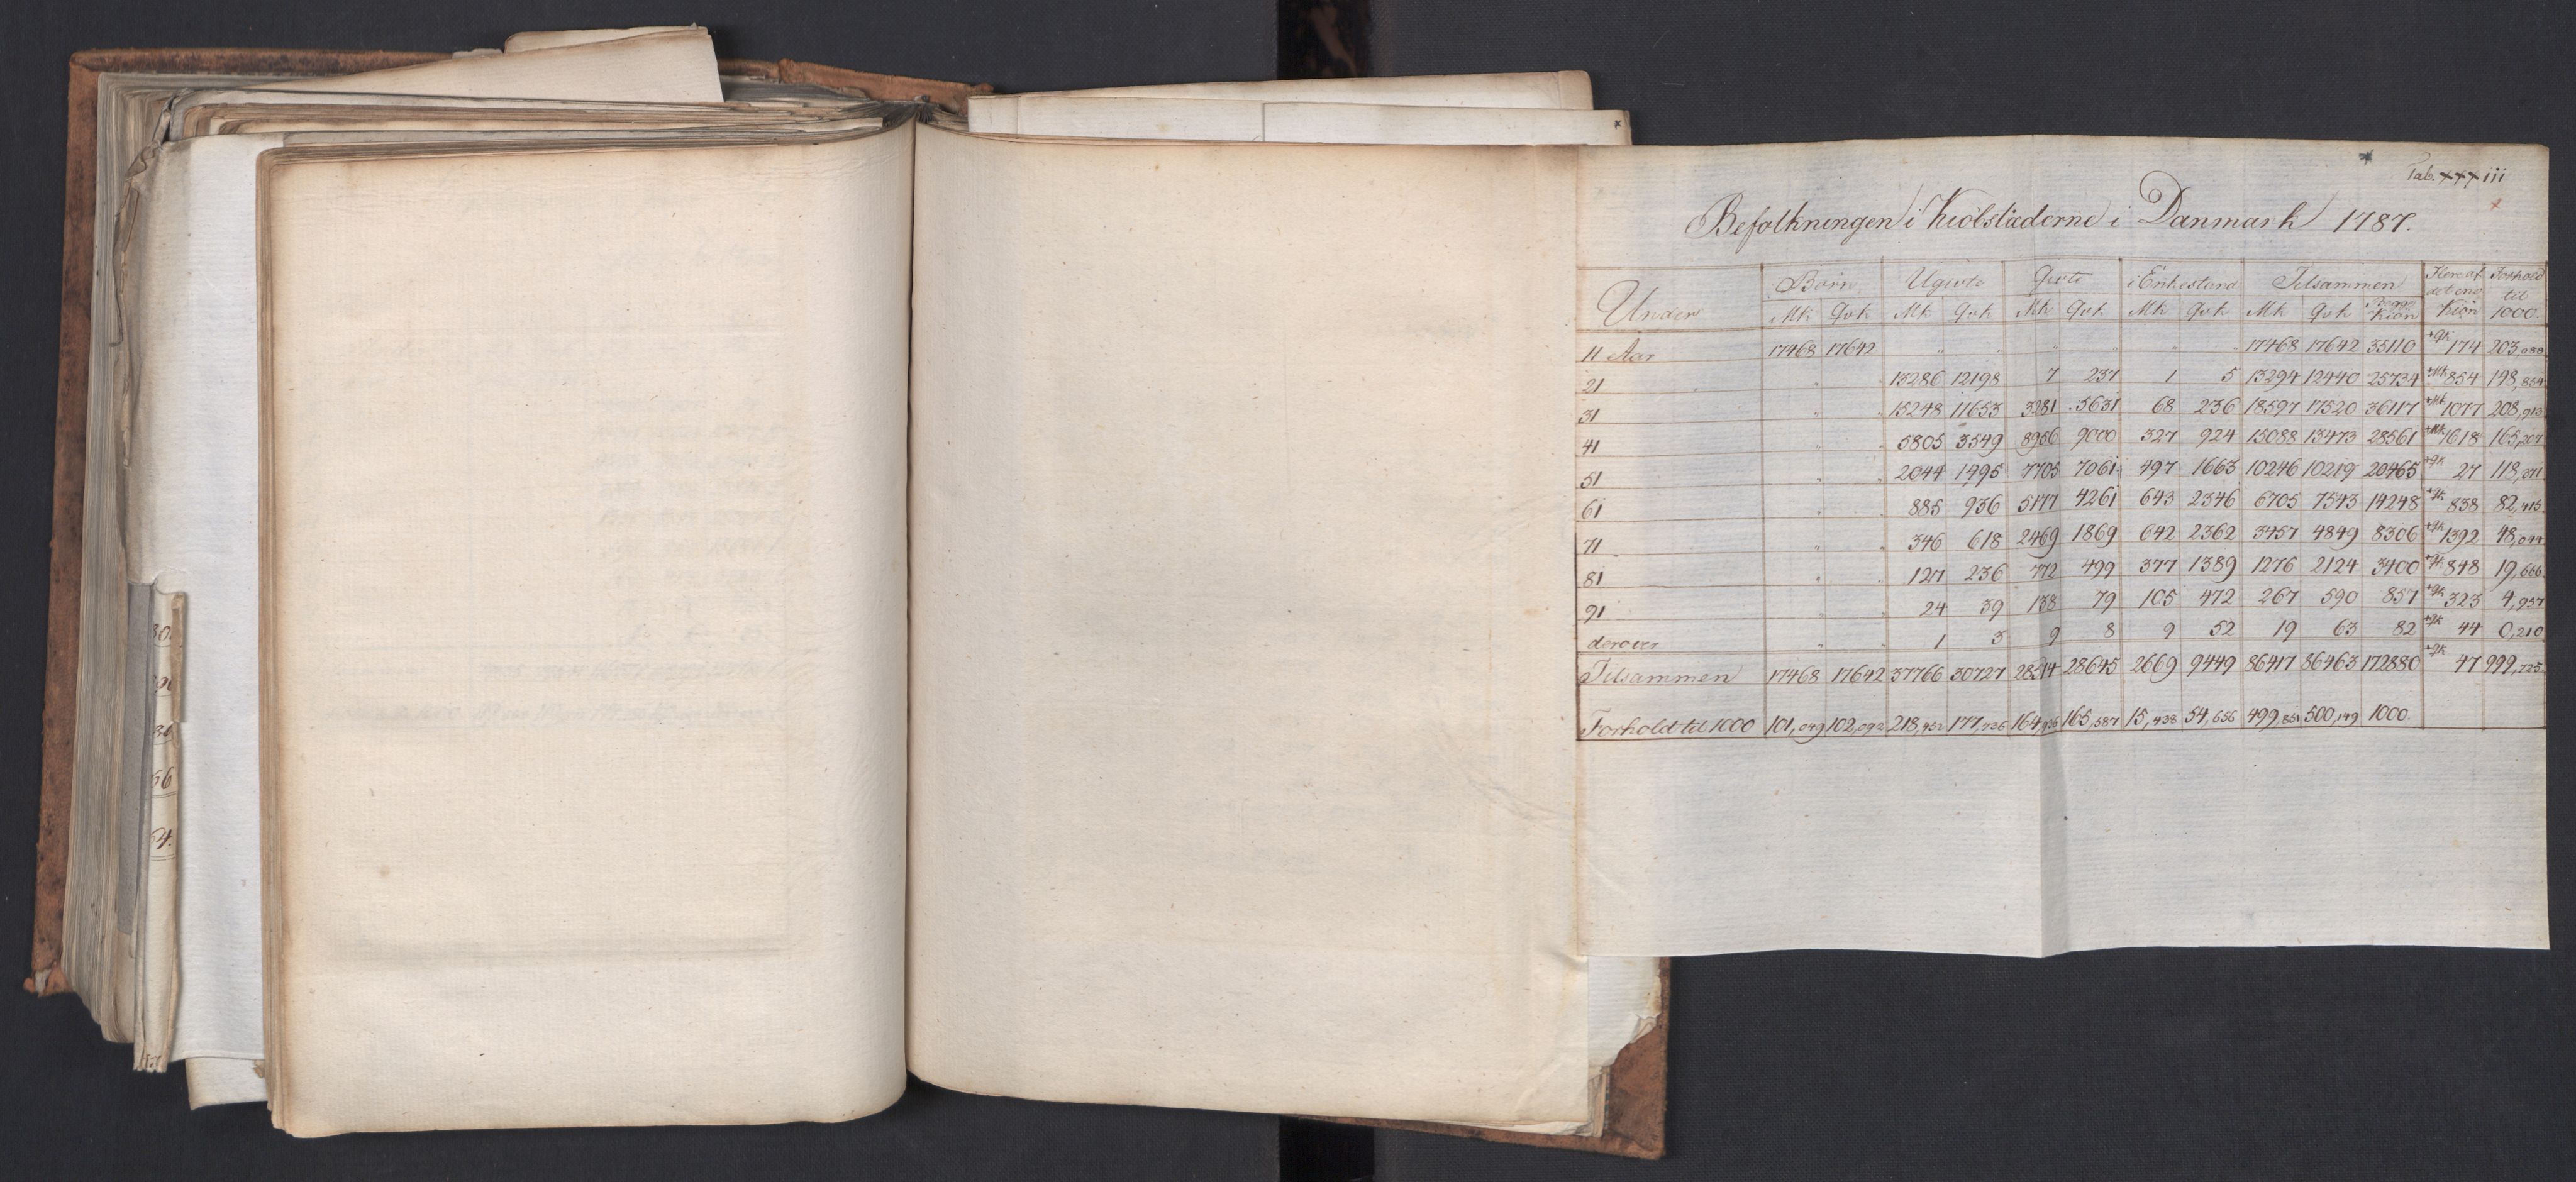 Tab. xxxiii
Befolkningen i Kiöbstæderne i Danmark 1787.
Under Børn Ugivte Givte i Enkestand Tilsammen Fleere af det ene Kiøn Forhold til 1000.
Mk Qvk Mk Qvk Mk Qvk Mk Qvk Mk Qvk Begge Kiøn
11 Aar 17468 17642 " " " " " " 17468 17642 35110 +Qk 174 203,080
21 " " 13286 12198 7 237 1 5 13294 12440 25734 +Mk 854 148,854
31 " " 15248 11653 3281 5631 68 236 18597 17520 36117 +Mk 1077 208,913
41 " " 5805 3549 8956 9000 327 924 15088 13473 28561 +Mk 1618 165,207
51 " " 2044 1495 7705 7061 497 1663 10246 10219 20465 +Qk 27 118,071
61 " " 885 936 5177 4261 643 2346 6705 7543 14248 +Qk 838 82,415
71 " " 346 618 2469 1869 642 2362 3457 4849 8306 +Qk 1392 48,044
81 " " 127 236 772 499 377 1389 1276 2124 3400 +Qk 848 19,666
91 " " 24 39 138 79 105 472 267 590 857 +Qk 323 4,957
derover " " 1 3 9 8 9 52 19 63 82 +Qk 44 0,210
Tilsammen 17468 17642 37766 30727 28514 28645 2669 9449 86417 86463 172880 +Qk 47 999,725
Forhold til 1000 101,049 102,092 218,452 177,736 164,936 165,587 15,438 54,656 499,851 500,149 1000.
56
4.